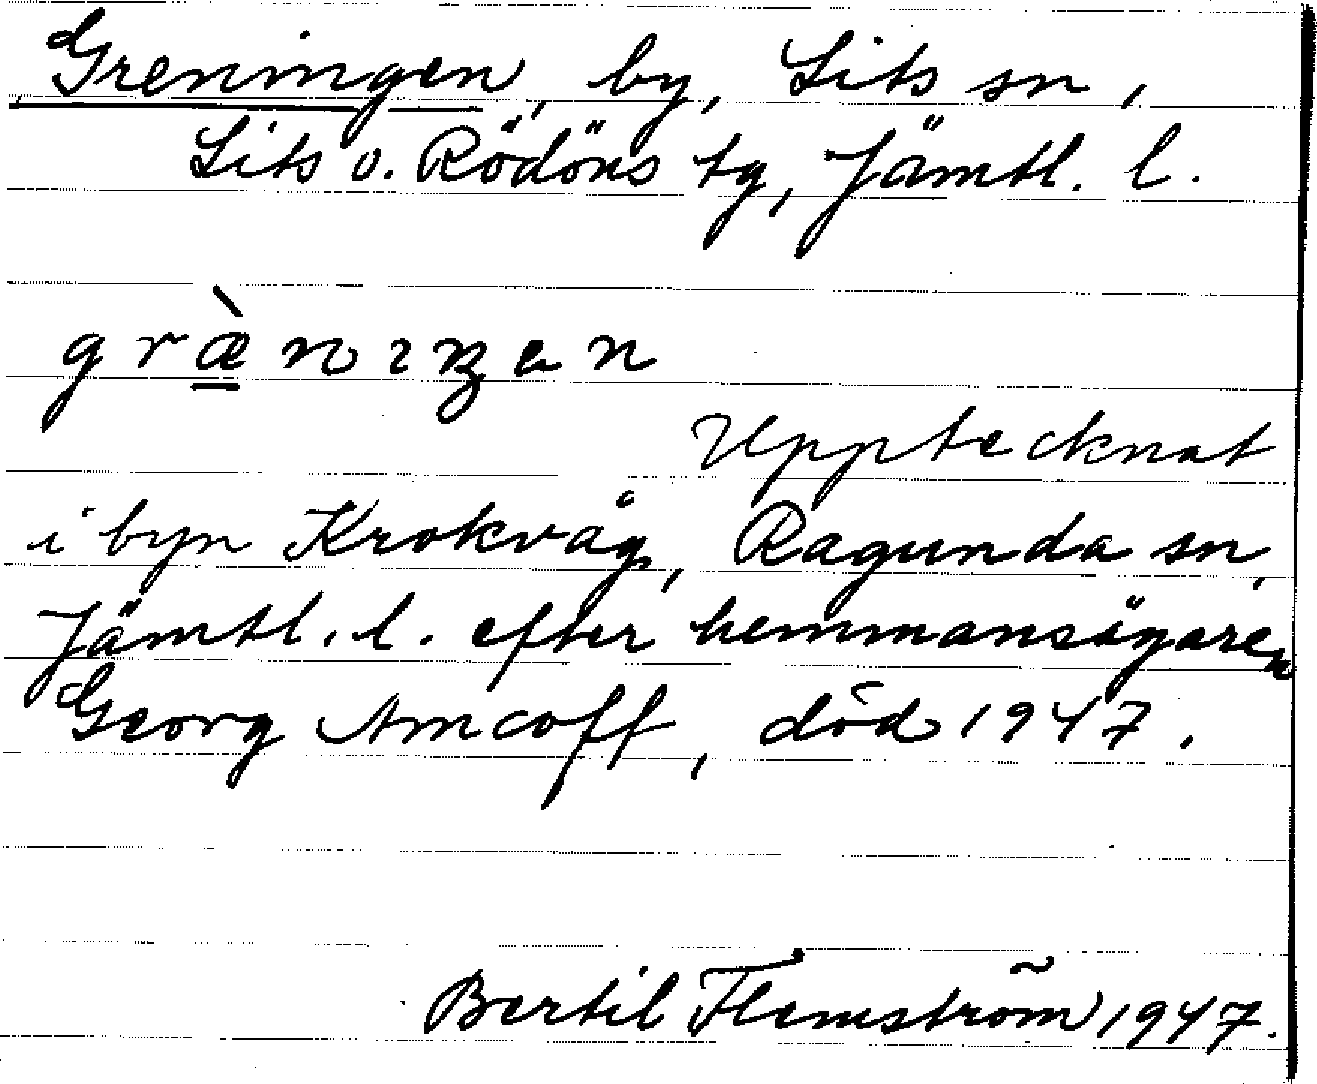 Greningen, by, Lits sn,
Lits o. Rödöns tg, Jämtl. l.
græ̀nıŋen
Upptecknat
i byn Krokvåg, Ragunda sn,
Jämtl. l. efter hemmansägaren
Georg Amcoff, död 1947.
Bertil Flemström 1947.